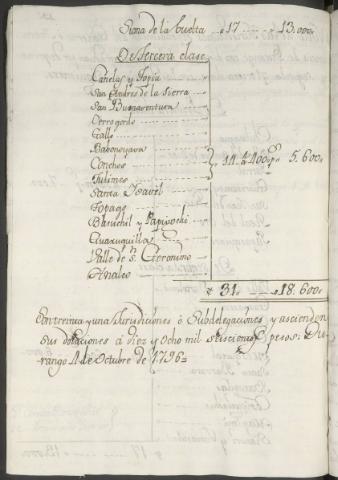 Suma de la buelta 17 13.000
De Tercera clase
Canelas y Topia
San Andres de la Sierra
San Buenaventura
Cerrogordo
Gallo
Baboroyava
Conchos 14. à 400 p.s 5.600
Julimes
Santa Ysavel
Topago
Batuchil y Papigochi
Guaxuquilla
Valle de S.n Geronimo
Analco
31. 18.600
Son treinta y una Jurisdiciones ó Subdelegaciones y ascienden
sus dotaciones á diez y ocho mil seiscientos pesos. Du-
rango 4 de Octubre de 1796=